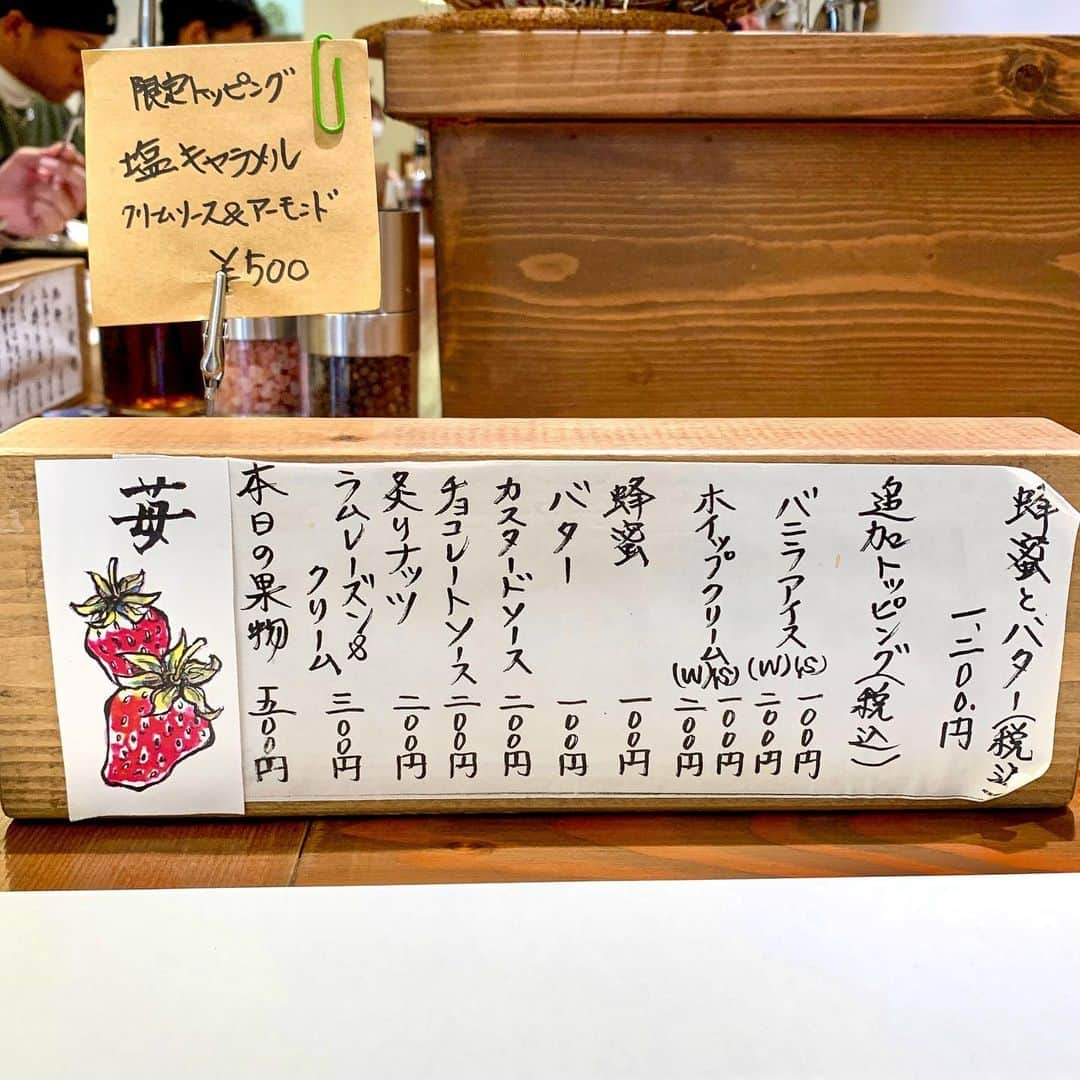 限定トッピング
塩キャラメル
クリームソース&アーモンド
¥500
蜂蜜とバター(税込)
一、二〇〇円
追加トッピング(税込)
バニラアイス(S)一〇〇円
(W)二〇〇円
ホイップクリーム(S)一〇〇円
(W)二〇〇円
蜂蜜 一〇〇円
バター 一〇〇円
カスタードソース 二〇〇円
チョコレートソース 二〇〇円
炙りナッツ 二〇〇円
ラムレーズン&
クリーム 三〇〇円
本日の果物 五〇〇円
苺